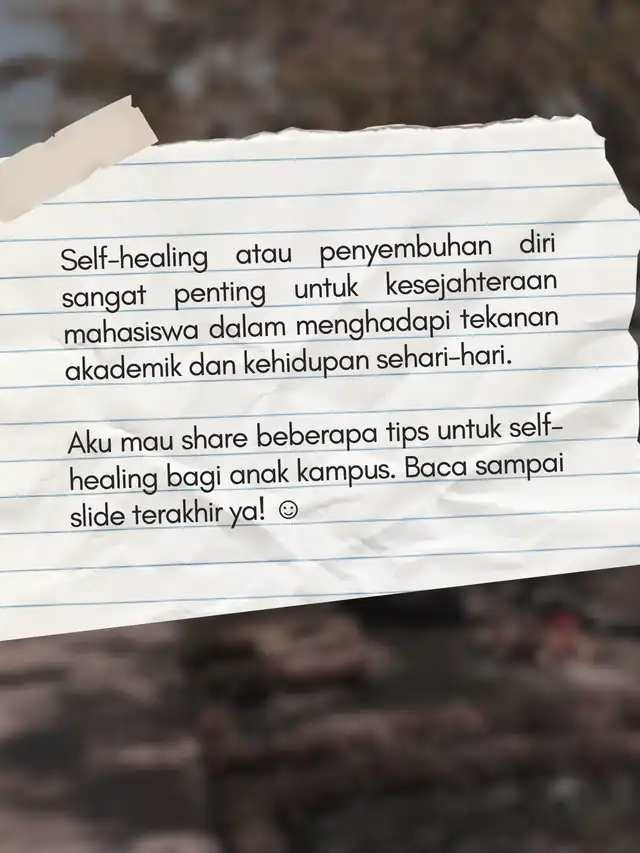 Self-healing atau penyembuhan diri
sangat penting untuk kesejahteraan
mahasiswa dalam menghadapi tekanan
akademik dan kehidupan sehari-hari.
Aku mau share beberapa tips untuk self-
healing bagi anak kampus. Baca sampai
slide terakhir ya! ☺